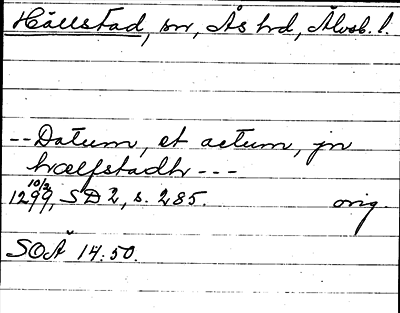 Hällstad, sn, Ås hd, Älvsb. l.
-- Datum, et actum, jn
hælfstadh ---
10/2
1299, SD 2, s. 285. orig.
SOÄ 14:50.